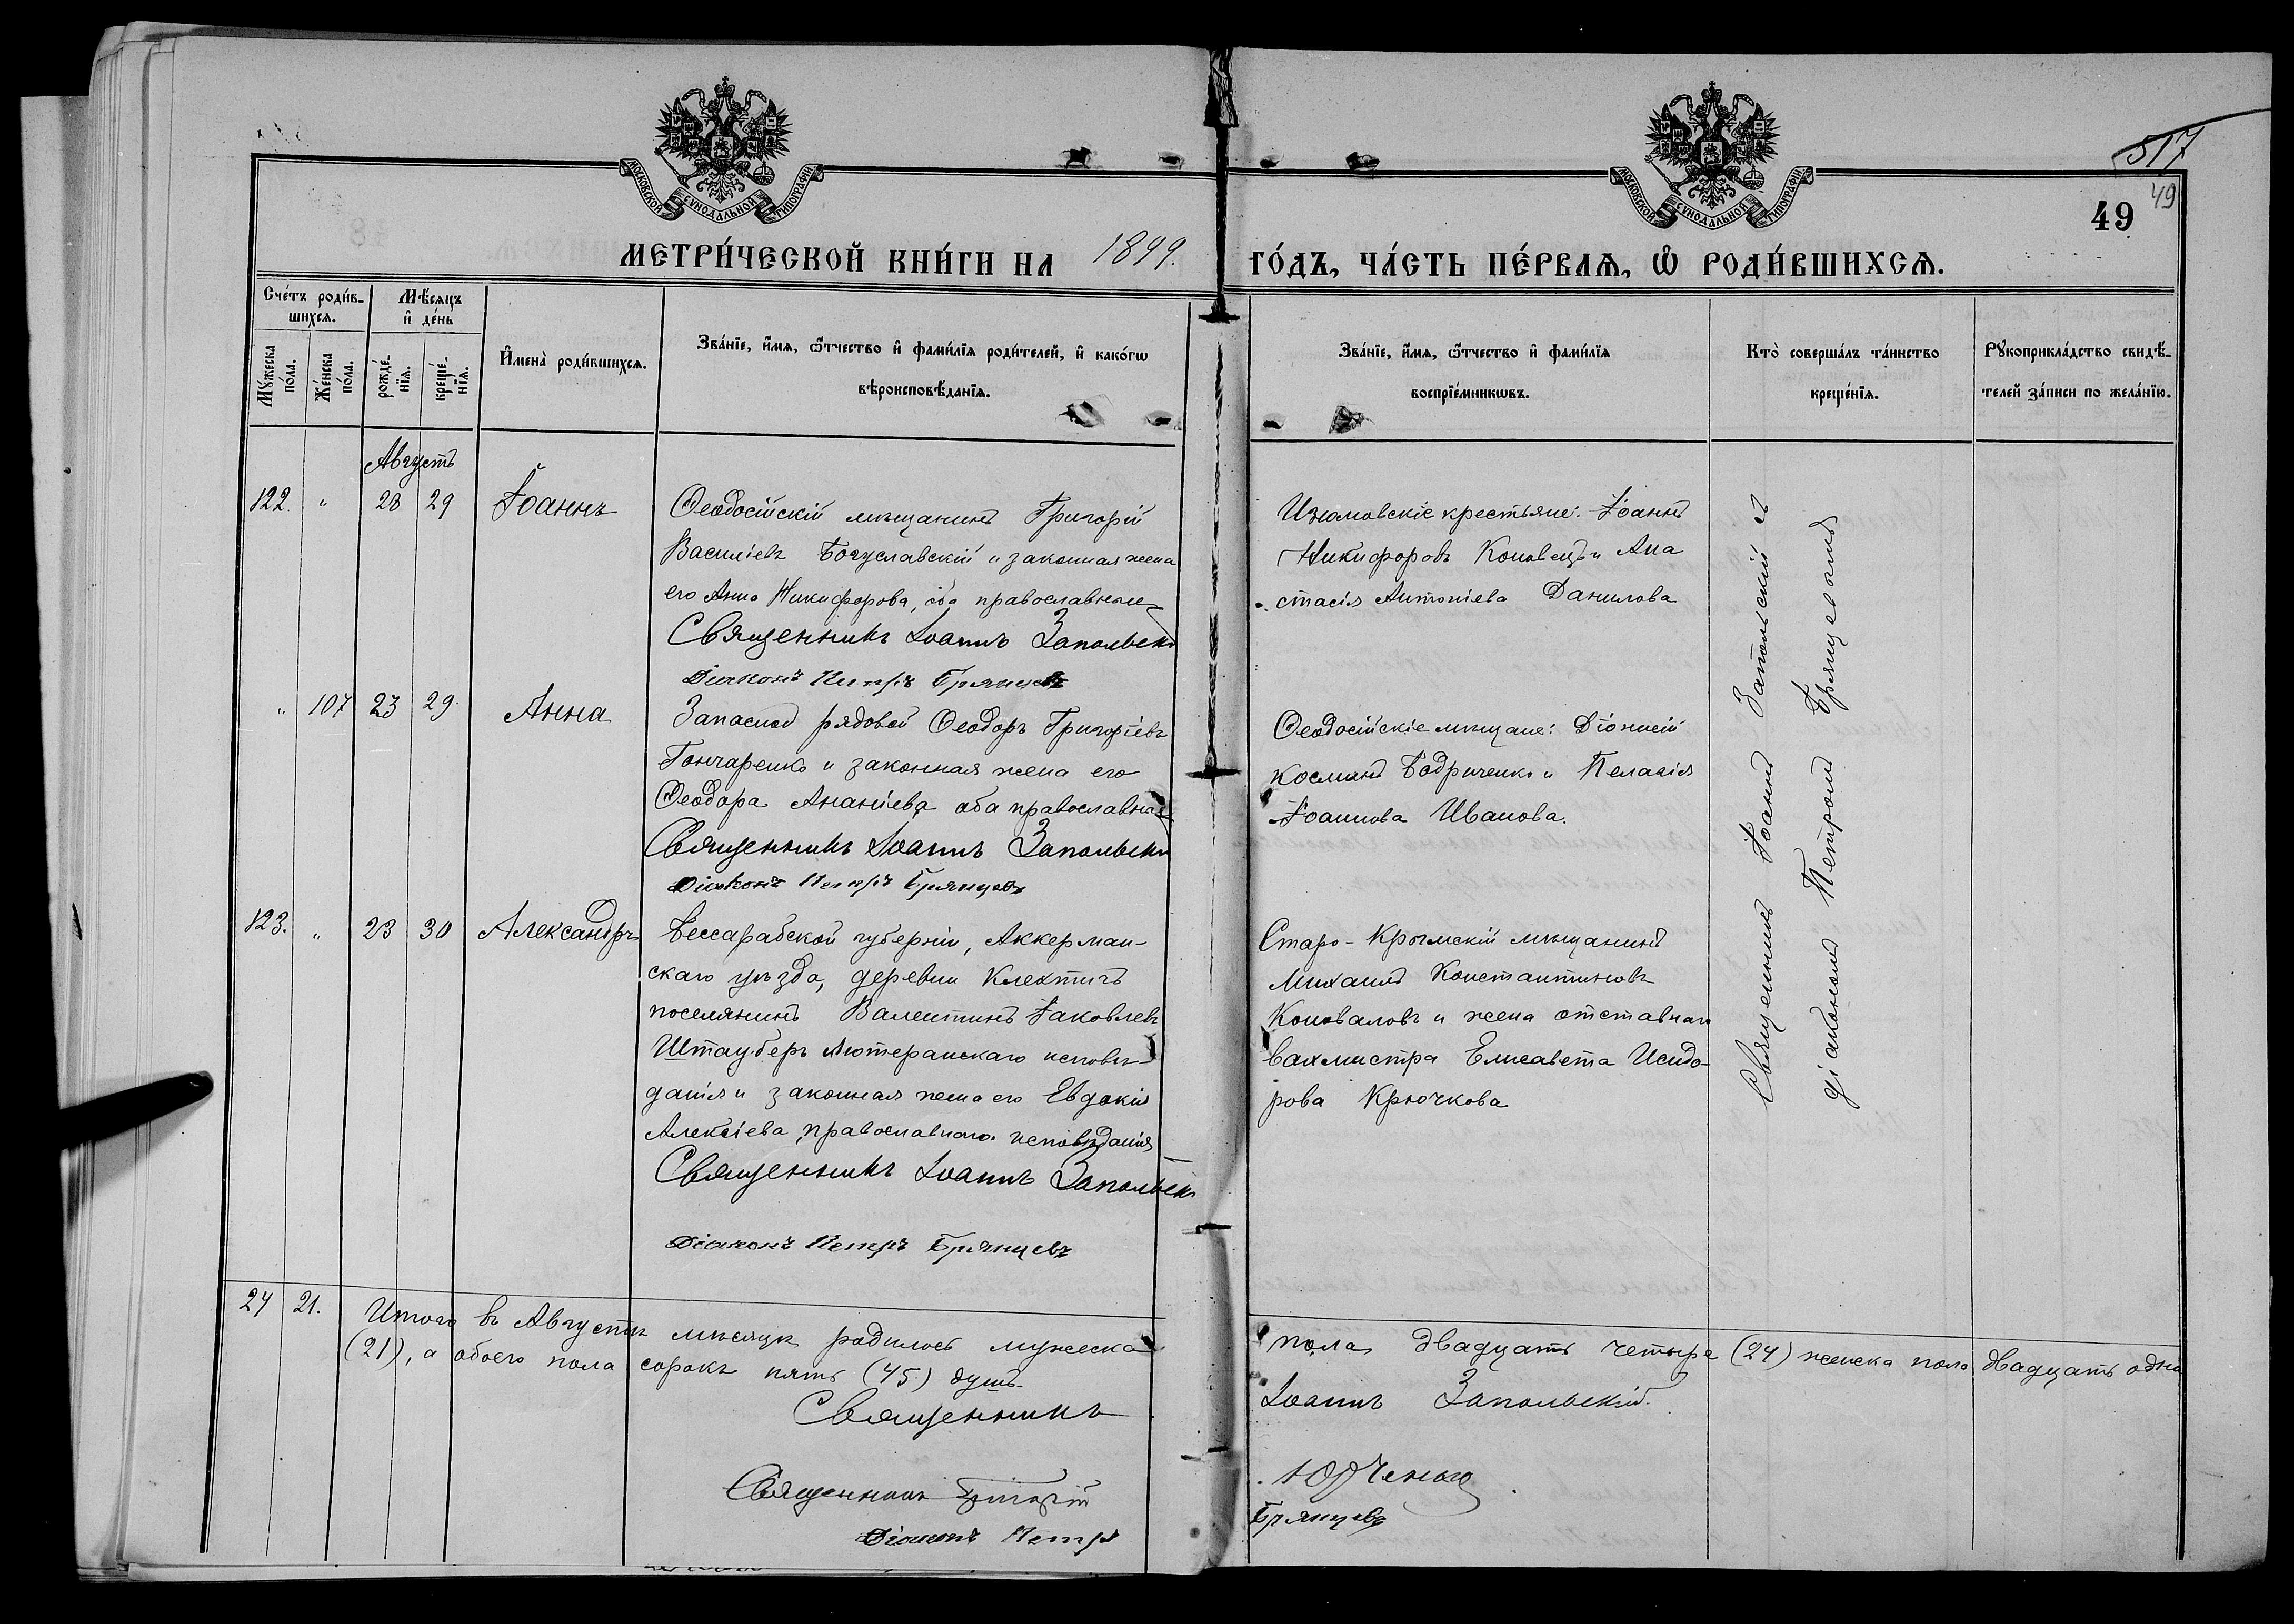 МОСКОВСКОЙ СѴНОДАЛЬНОЙ ТИПОГРАФІИ
МОСКОВСКОЙ СѴНОДАЛЬНОЙ ТИПОГРАФІИ
517
49
49
МЕТРИ́ЧЕСКОЙ КНИ́ГИ НА 1899. ГО́ДЪ, ЧА́СТЬ ПЕ́РВАѦ, Ѽ РОДИ́ВШИХСѦ.
Сче́тъ роди́в-
шихсѧ.
Мꙋ́жеска
по́ла.
Же́нска
по́ла.
Мѣ́сѧцъ
и҆ де́нь
рожде́-
нїѧ.
креще́-
нїѧ.
И҆мена̀ роди́вшихсѧ.
Зва́нїе, и҆́мѧ, ѻ҆́тчество и҆ фами́лїѧ роди́телей, и҆ како́гѡ
вѣроисповѣ́данїѧ.
Зва́нїе, и҆́мѧ, ѻ҆́тчество и҆ фами́лїѧ
воспрїе́мникѡвъ.
Кто̀ соверша́лъ та́инство
креще́нїѧ.
Рꙋкоприкла́дство свидѣ́-
телей за́писи по жела́нїю.
Августъ
122. " 28 29 Іоаннъ
Ѳеодосійскій мѣщанинъ Григорій
Василіевъ Богуславскій и законная жена
его Анна Никифорова, оба православные
Священникъ Іоаннъ Запольскі
Діаконъ Петръ Брянцевъ
Изюмовскіе крестьяне: Іоаннъ
Никифоровъ Коновецъ и Ана
стасія Антоніева Данилова
" 107 23 29 Анна
Запасной рядовой Ѳеодоръ Григоріевъ
Гончаренко и законная жена его
Ѳеодора Ананіева оба православные
Священникъ Іоаннъ Запольскі
Діаконъ Петръ Брянцевъ
Ѳеодосійскіе мѣщане: Діонисій
Косминъ Бодриченко и Пелагія
Іоаннова Иванова.
123. " 23 30 Александръ
Бессарабской губерніи, Аккерман-
скаго уѣзда, деревни Клектичъ
поселянинъ Валентинъ Іаковлевъ
Штауберъ лютеранскаго исповѣ-
данія и законная жена его Евдокія
Алексіева, православнаго исповѣданія
Священникъ Іоаннъ Запольскі
Діаконъ Петръ Брянцевъ
Старо-Крымскій мѣщанинъ
Михаилъ Константиновъ
Коноваловъ и жена отставнаго
вахмистра Елисавета Исидо-
рова Крючкова
Священникъ Іоаннъ Запольскій съ
діакономъ Петромъ Брянцевымъ
24 21. Итого въ Августѣ мѣсяцѣ родилось мужеска пола двадцать четыре (24) женска пола двадцать одна
(21), а обоего пола сорокъ пять (45) душъ.
Священникъ Іоаннъ Запольскій.
Священникъ Григорій Юрченко
Діаконъ Петръ Брянцевъ